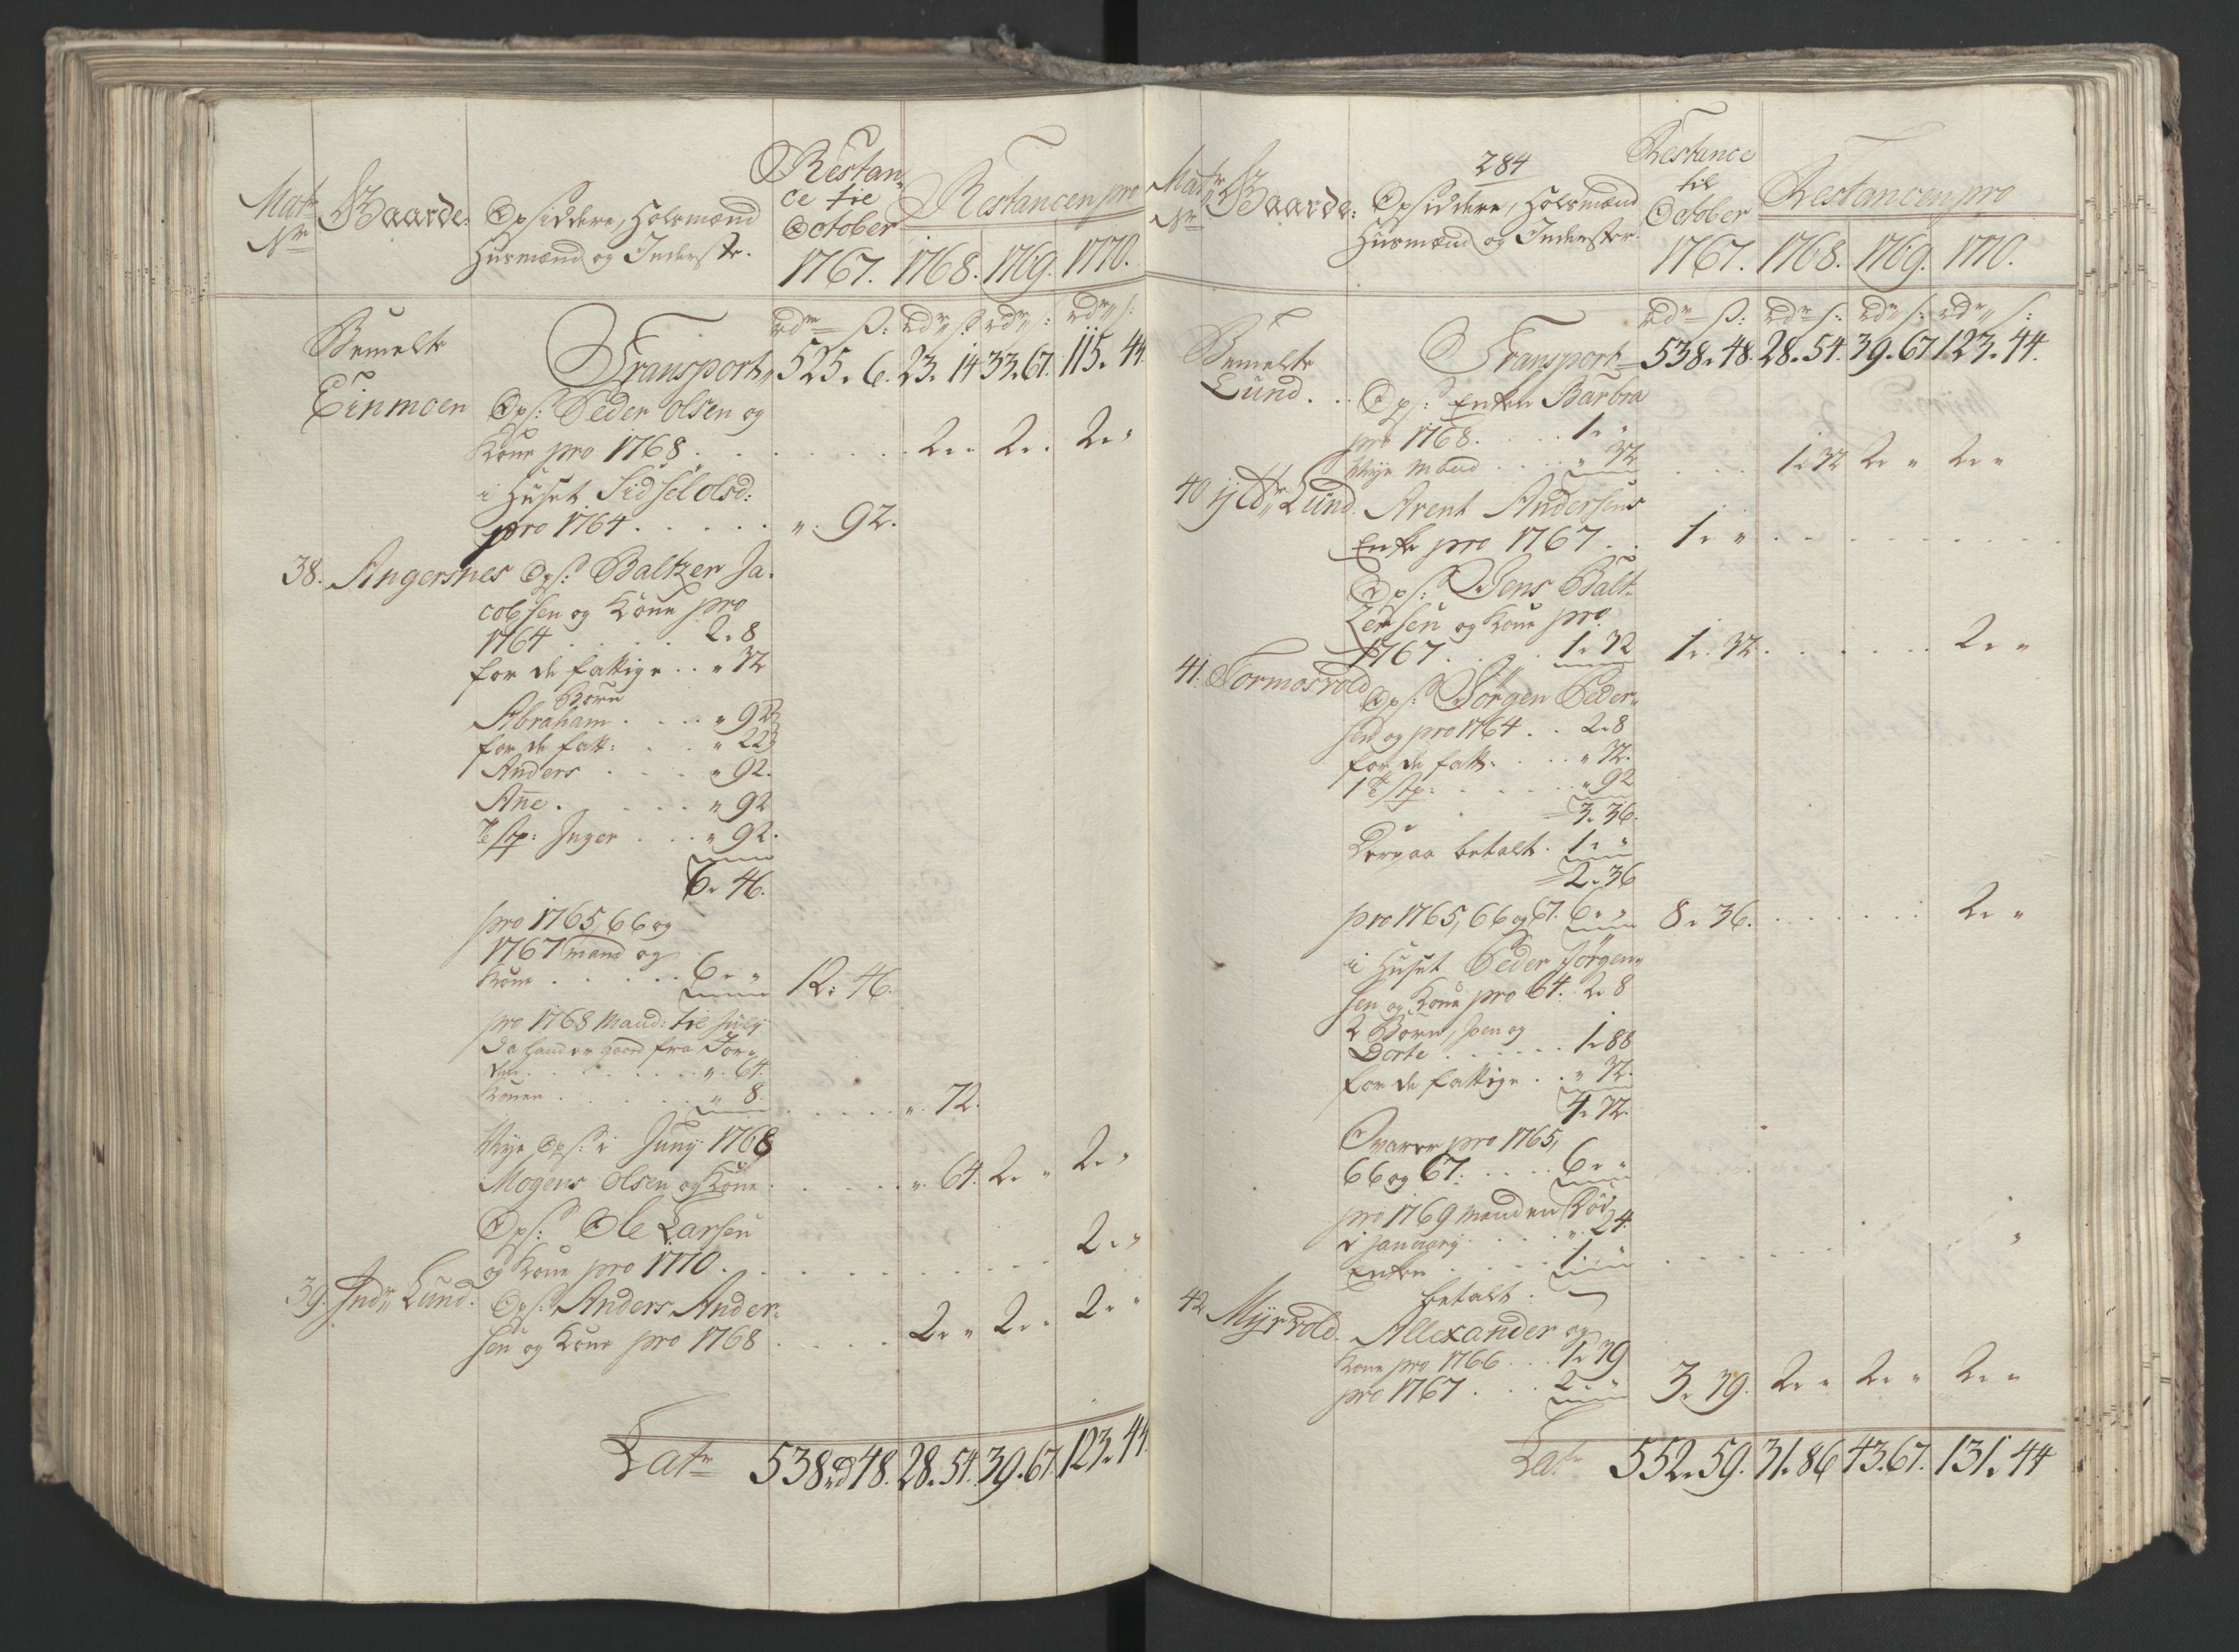 Matr Nr Gaarde: Opsiddere, Holsmænd Husmænd og Inderster. Restance til October 1767. Restancen pro 1768. 1769. 1770.
rdr ß: rdr ß: rdr ß: rdr ß:
Bemelte Transport 525. 6. 23. 14 33. 67. 115. 44
Einmoen Ops: Peder Olsen og
Kone pro 1768 . . . 2. " 2. " 2. "
i Huset Sidsel Olsd:
pro 1764 . . . . . ". 92.
38. Angersnes Ops: Baltzer Ja-
cobsen og Kone pro
1764 . . . 2. 8
for de fattige . . " 32
Børn
Abraham . . . " 92
for de fatt: . . . " 22
Anders . . . " 92.
Añe . . . . " 92
Tie stp: Inger . . . " 92.
6. 46.
pro 1765, 66 og
1767 mand og
Kone . . . . . 6. " 12. 46.
pro 1768 Mand: til July
da hand er fra Jor-
den . . . . . ". 64.
Konen . . . . " 8. . . . ". 72.
Nye Ops: i Juny 1768
Mogens Olsen og Kone . . . ". 64. 2. " 2. "
Ops: Ole Larsen
og Kone pro 1770 . . . 2. "
39. Indr Lund. Ops: Anders Ander-
sen og Kone pro 1768 . . . 2. " 2. " 2. "
Latr 538 rd 48. 28. 54. 39. 67. 123. 44.
284
Matr Nr Gaarde: Opsiddere, Holsmænd Husmænd og Inderster. Restance til October 1767. Restancen pro 1768. 1769. 1770.
rdr ß: rdr ß: rdr ß: rdr ß:
Bemelte Transport 538. 48. 28. 54. 39. 67 123. 44.
Lund . . Ops: Enken Barbra
pro 1768 . . . . 1. "
Nye Mand . . . " 32 . . . 1. 32 2. " 2. "
40 ytr Lund. Arent Andersens
Enke pro 1767 . . 1. " . . .
Ops: Jens Balt-
zersen og Kone pro
1767 . . . 1. 32 1. 32. . . . 2. "
41. Formosvold Ops: Jørgen Peder-
sen og pro 1764 . . 2. 8
for de fatt: . . . " 32.
1 Tie stp: . . . . " 92
3. 36.
Derpaa betalt . 1. "
2. 36
pro 1765, 66 og 67. 6. " 8. 36. . . . 2. "
i Huset Peder Jørgen-
sen og Kone pro 64. 2. 8
2 Børn, Joen og
Dorte . . . . . 1. 88
for de fattige . . " 32.
4. 32.
Qvarer pro 1765,
66 og 67. . . . 6. "
pro 1769 Manden død
i January . . . ". 24.
Enken . . . . 1. " . . . "
betalt .
42 Myrvold. Allexander og
Kone pro 1766 . . . 1. 39
pro 1767 . . . 2. " 3. 39. 2. " 2. " 2. "
Latr 552. 59. 31. 86 43. 67. 131. 44